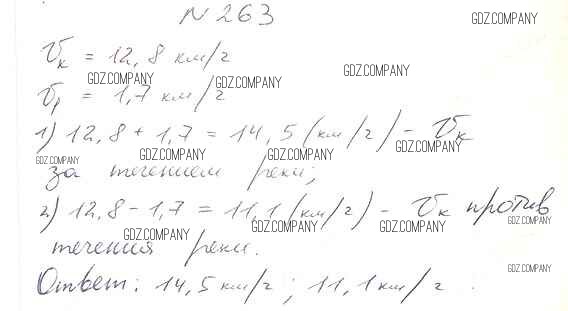 N 263
GDZ.COMPANY
Vк = 12,8 км/г
GDZ.COMPANY GDZ.COMPANY GDZ.COMPANY
Vр = 1,7 км/г
1) 12,8 + 1,7 = 14,5 (км/г) - Vк
GDZ.COMPANY GDZ.COMPANY GDZ.COMPANY GDZ.COMPANY
за течением реки;
2) 12,8 - 1,7 = 11,1 (км/г) - Vк против
GDZ.COMPANY GDZ.COMPANY GDZ.COMPANY GDZ.COMPANY
течения реки.
GDZ.COMPANY
Ответ: 14,5 км/г; 11,1 км/г.